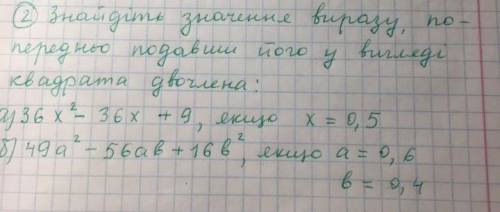 ② Знайдіть значення виразу, по-
передньо подавши його у вигляді
квадрата двочлена:
а) 36x² - 36x + 9, якщо x = 0,5
б) 49a² - 56ab + 16b², якщо a = 0,6
b = 0,4